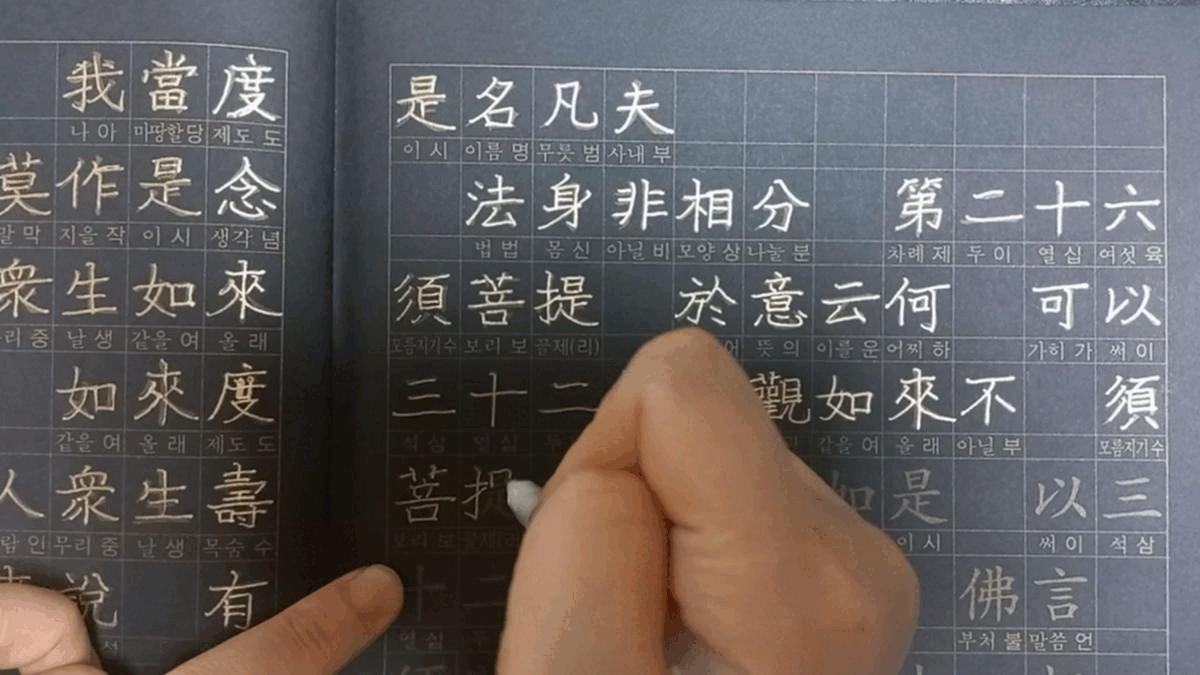 我 當 度
나 아 마땅할 당 제도 도
莫 作 是 念
말 막 지을 작 이 시 생각 념
衆 生 如 來
무리 중 날 생 같을 여 올 래
如 來 度
같을 여 올 래 제도 도
人 衆 生 壽
사람 인 무리 중 날 생 목숨 수
說 有
是 名 凡 夫
이 시 이름 명 무릇 범 사내 부
法 身 非 相 分 第 二 十 六
법 법 몸 신 아닐 비 모양 상 나눌 분 차례 제 두 이 열 십 여섯 육
須 菩 提 於 意 云 何 可 以
모름지기 수 보리 보 끌 제(리) 어 뜻 의 이를 운 어찌 하 가히 가 써 이
三 十 二 觀 如 來 不 須
석 삼 열 십 두 같을 여 올 래 아닐 부 모름지기 수
菩 提 如 是 以 三
보리 보 끌 제(리) 이 시 써 이 석 삼
十 二 佛 言
열 십 부처 불 말씀 언